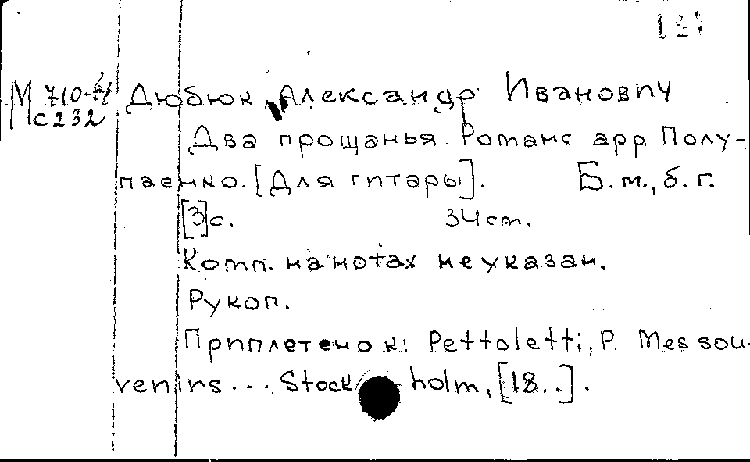 М 710-
с232
Дюбюк, Александр Иванович
Два прощанья. Романс арр. Полу-
паенко. [Для гитары]. Б.м., б.г.
[3]с. 34 cm.
Комп. на нотах не указан.
Рукоп.
Приплетено к: Pettoletti, P. Mes sou-
venirs... Stockholm, [18..].